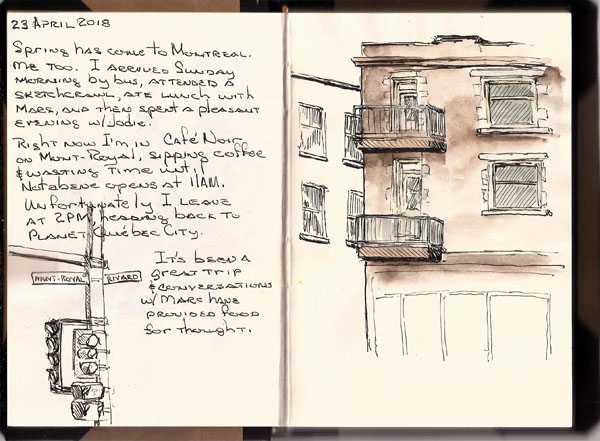 23 APRIL 2018
SPRING HAS COME TO MONTREAL.
ME TOO. I ARRIVED SUNDAY
MORNING BY BUS, ATTENDED A
SKETCHCRAWL, ATE LUNCH WITH
MARC, AND THEN SPENT A PLEASANT
EVENING W/ JODIE.
RIGHT NOW I'M IN CAFÉ NOIR
ON MONT-ROYAL, SIPPING COFFEE
& WASTING TIME UNTIL
NOTABENE OPENS AT 11AM.
UNFORTUNATELY I LEAVE
AT 2PM, HEADING BACK TO
PLANET QUÉBEC CITY.
IT'S BEEN A
GREAT TRIP
& CONVERSATIONS
W/ MARC HAVE
PROVIDED FOOD
FOR THOUGHT.
MONT-ROYAL RIVARD